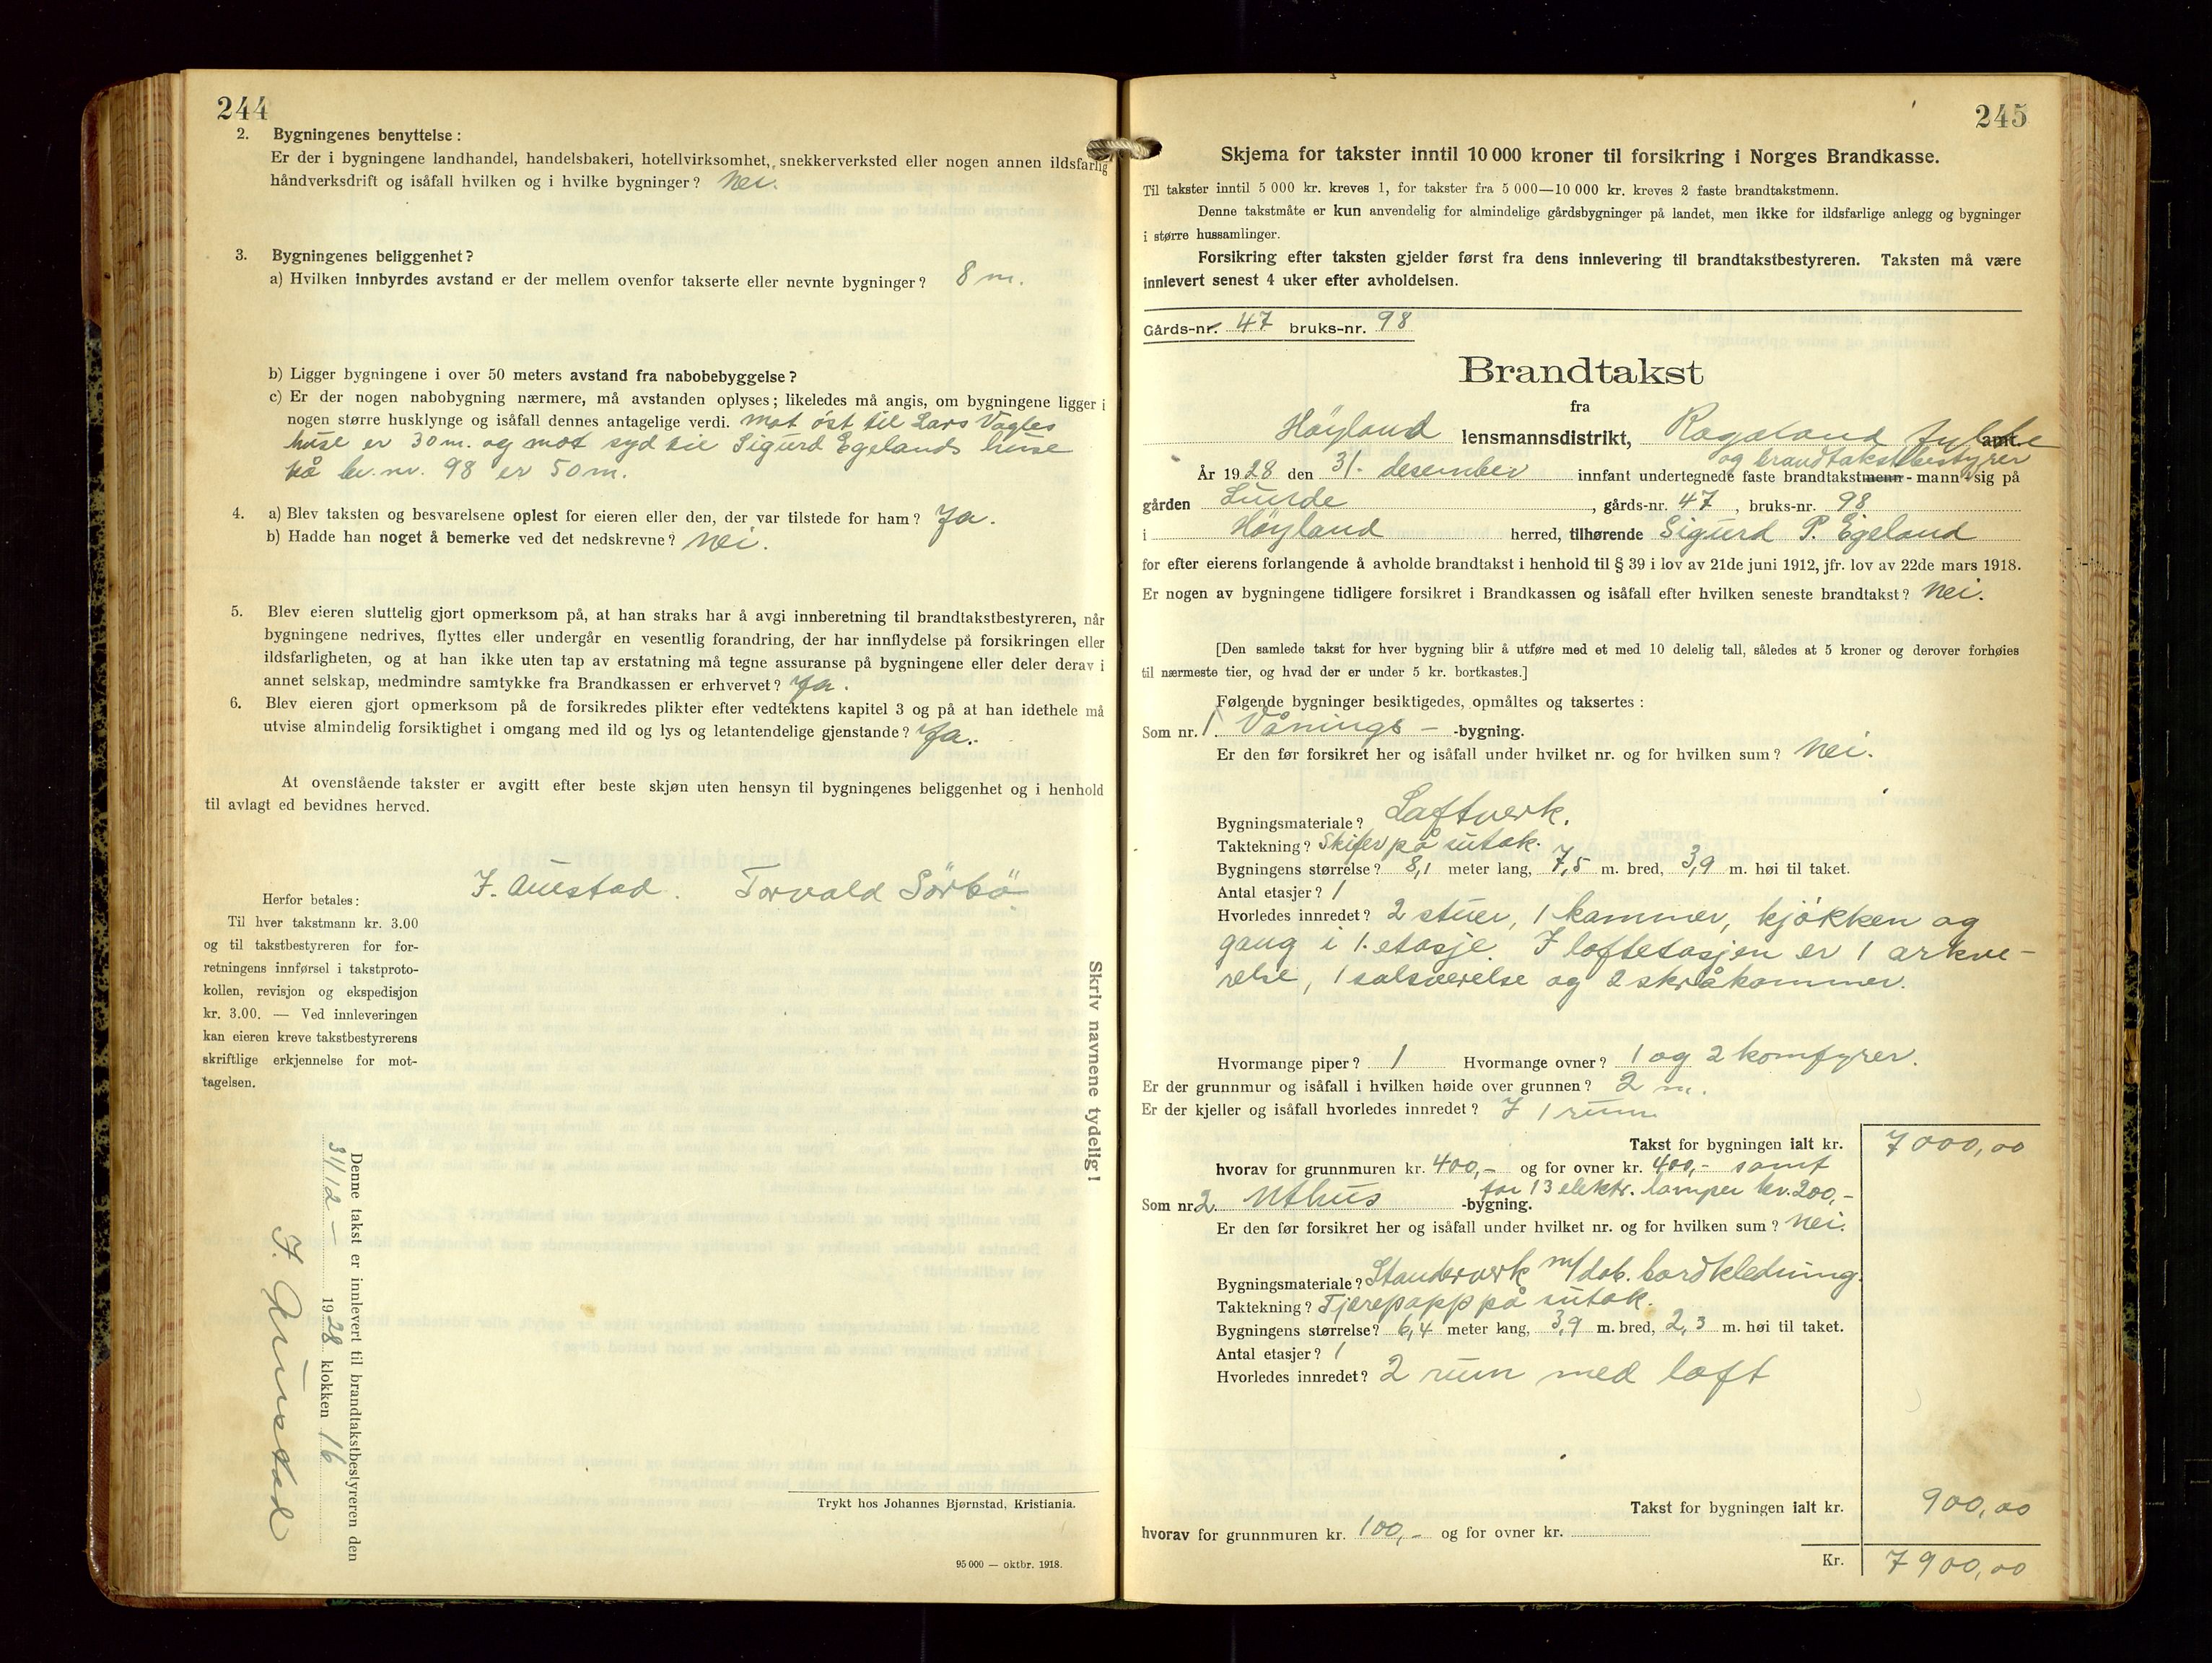 244
2. Bygningenes benyttelse:
Er der i bygningene landhandel, handelsbakeri, hotellvirksomhet, snekkerverksted eller nogen annen ildsfarlig
håndverksdrift og isåfall hvilken og i hvilke bygninger? Nei.
3. Bygningenes beliggenhet?
a) Hvilken innbyrdes avstand er der mellem ovenfor takserte eller nevnte bygninger? 8 m.
b) Ligger bygningene i over 50 meters avstand fra nabobebyggelse?
c) Er der nogen nabobygning nærmere, må avstanden oplyses; likeledes må angis, om bygningene ligger i
nogen større husklynge og isåfall dennes antagelige verdi. Mot öst til Lars Vagles
huse er 30 m. og mot syd til Sigurd Egelands huse
på br.nr. 98 er 50 m.
4. a) Blev taksten og besvarelsene oplest for eieren eller den, der var tilstede for ham? Ja.
b) Hadde han noget å bemerke ved det nedskrevne? Nei.
5. Blev eieren sluttelig gjort opmerksom på, at han straks har å avgi innberetning til brandtakstbestyreren, når
bygningene nedrives, flyttes eller undergår en vesentlig forandring, der har innflydelse på forsikringen eller
ildsfarligheten, og at han ikke uten tap av erstatning må tegne assuranse på bygningene eller deler derav i
annet selskap, medmindre samtykke fra Brandkassen er erhvervet? Ja.
6. Blev eieren gjort opmerksom på de forsikredes plikter efter vedtektens kapitel 3 og på at han idethele må
utvise almindelig forsiktighet i omgang med ild og lys og letantendelige gjenstande? Ja.
At ovenstående takster er avgitt efter beste skjøn uten hensyn til bygningenes beliggenhet og i henhold
til avlagt ed bevidnes herved.
J. Austad. Torvald Sörbö.
Herfor betales:
Til hver takstmann kr. 3.00
og til takstbestyreren for for-
retningens innførsel i takstproto-
kollen, revisjon og ekspedisjon
kr. 3.00. — Ved innleveringen
kan eieren kreve takstbestyrerens
skriftlige erkjennelse for mot-
tagelsen.
Skriv navnene tydelig!
Denne takst er innlevert til brandtakstbestyreren den
31/12 – 1928 klokken 16
J. Austad
Trykt hos Johannes Bjørnstad, Kristiania.
95 000 — oktbr. 1918.
245
Skjema for takster inntil 10 000 kroner til forsikring i Norges Brandkasse.
Til takster inntil 5 000 kr. kreves 1, for takster fra 5 000—10 000 kr. kreves 2 faste brandtakstmenn.
Denne takstmåte er kun anvendelig for almindelige gårdsbygninger på landet, men ikke for ildsfarlige anlegg og bygninger
i større hussamlinger.
Forsikring efter taksten gjelder først fra dens innlevering til brandtakstbestyreren. Taksten må være
innlevert senest 4 uker efter avholdelsen.
Gårds-nr. 47 bruks-nr. 98
Brandtakst
fra
Höyland lensmannsdistrikt, Rogaland fylke amt.
og brandtakstbestyrer
År 1928 den 31. desember innfant undertegnede faste brandtakstmenn - mann sig på
gården Lurde, gårds-nr. 47, bruks-nr. 98
i Höyland herred, tilhørende Sigurd P. Egeland
for efter eierens forlangende å avholde brandtakst i henhold til § 39 i lov av 21de juni 1912, jfr. lov av 22de mars 1918.
Er nogen av bygningene tidligere forsikret i Brandkassen og isåfall efter hvilken seneste brandtakst? Nei.
[Den samlede takst for hver bygning blir å utføre med et med 10 delelig tall, således at 5 kroner og derover forhøies
til nærmeste tier, og hvad der er under 5 kr. bortkastes.]
Følgende bygninger besiktigedes, opmåltes og taksertes:
Som nr. 1. Vånings – -bygning.
Er den før forsikret her og isåfall under hvilket nr. og for hvilken sum? Nei.
Bygningsmateriale? Laftverk.
Taktekning? Skifer på sutak.
Bygningens størrelse? 8,1 meter lang, 7,5 m. bred, 3,9 m. høi til taket.
Antal etasjer? 1
Hvorledes innredet? 2 stuer, 1 kammer, kjökken og
gang i 1. etasje. I loftetasjen er 1 arkve-
relse, 1 salsværelse og 2 skråkammer.
Hvormange piper? 1 Hvormange ovner? 1 og 2 komfyrer.
Er der grunnmur og isåfall i hvilken høide over grunnen? 2 m.
Er der kjeller og isåfall hvorledes innredet? I 1 rum
Takst for bygningen ialt kr. 7000,00
hvorav for grunnmuren kr. 400,- og for ovner kr. 400,- samt
for 13 elektr. lamper kr. 200,-
Som nr. 2 Uthus -bygning.
Er den før forsikret her og isåfall under hvilket nr. og for hvilken sum? Nei.
Bygningsmateriale? Standerverk m/dob. bordkledning.
Taktekning? Tjærepapp på sutak.
Bygningens størrelse? 6,4 meter lang, 3,9 m. bred, 2,3 m. høi til taket.
Antal etasjer? 1
Hvorledes innredet? 2 rum med loft
Takst for bygningen ialt kr. 900,00
hvorav for grunnmuren kr. 100,- og for ovner kr.
Kr. 7900,00